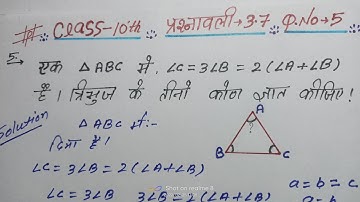 # Class-10th प्रश्नावली→3.7 Q.No→5
5→ एक △ABC में, ∠C = 3∠B = 2(∠A+∠B)
है। त्रिभुज के तीनों कोण ज्ञात कीजिए।
Solution
△ABC में:-
दिया है।
∠C = 3∠B = 2(∠A+∠B)
∠C = 3∠B 3∠B = 2(∠A+∠B)
A
B C
a = b = c
a = b
Shot on realme 8